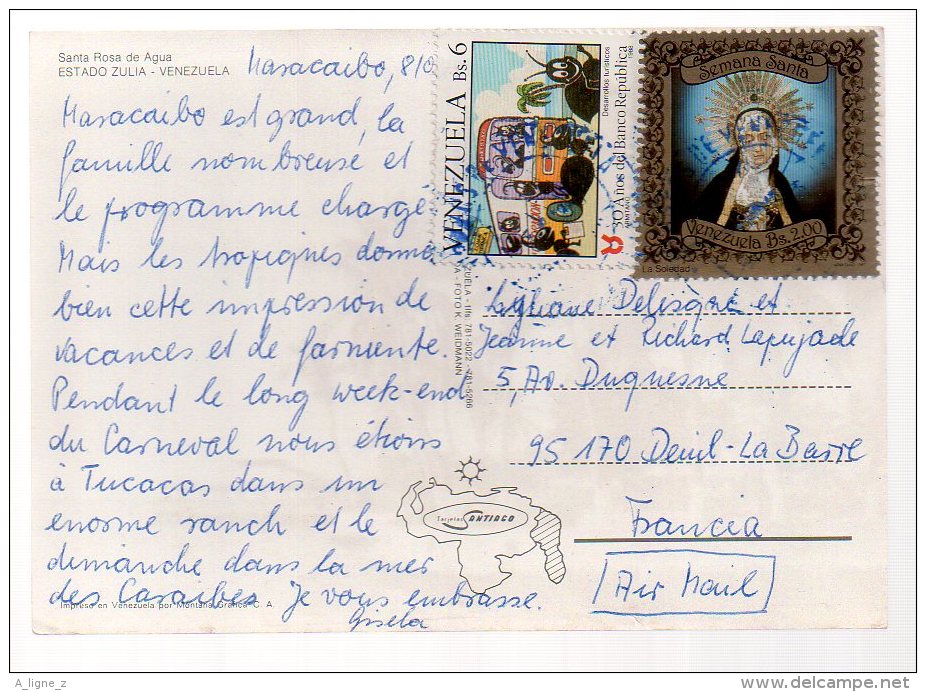 Santa Rosa de Agua
ESTADO ZULIA - VENEZUELA
Maracaibo, 8/
Maracaibo est grand, la
famille nombreuse et
le programme chargé
Mais les tropiques donne
bien cette impression de
vacances et de farniente.
Pendant le long week-end
du Carneval nous étions
à Tucacas dans un
enorme ranch et le
dimanche dans la mer
des Caraibes Je vous embrasse.
Gisela
Impreso en Venezuela por Montana Grafica C. A.
VENEZUELA Bs. 6
Desarrollos turísticos
30 Años del Banco República
Semana Santa
Venezuela Bs. 2,00
La Soledad
ZUELA - Tlfs: 781-5022 - 781-5266
A - FOTO K. WEIDMANN
Delisgne et
Jeanne et Richard Lapujade
5, Av. Duquesne
95170 Deuil-La Barre
Francia
Air Mail
Tarjetas SANTIAGO
A_ligne_z
delcampe.net